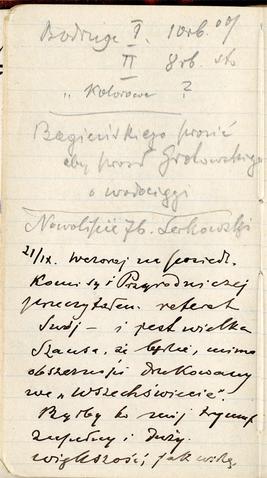 Bodruga I. 10 rb. 00/
II 8 rb. sto
" Kolorowe ?
Bagieńskiego prosić
aby prosił Grotowskiego
o wodociągi
Nowolipie 76. Lerkowski
21/IX. Wczoraj na posiedz.
Komisyi Przyrodniczej
przeczytałem referat
swój – i jest wielka
szansa, że będzie, mimo
obszerności drukowany
we „Wszechświecie".
Byłby to mój tryumf
zupełny i duży.
większość, jak widzę,